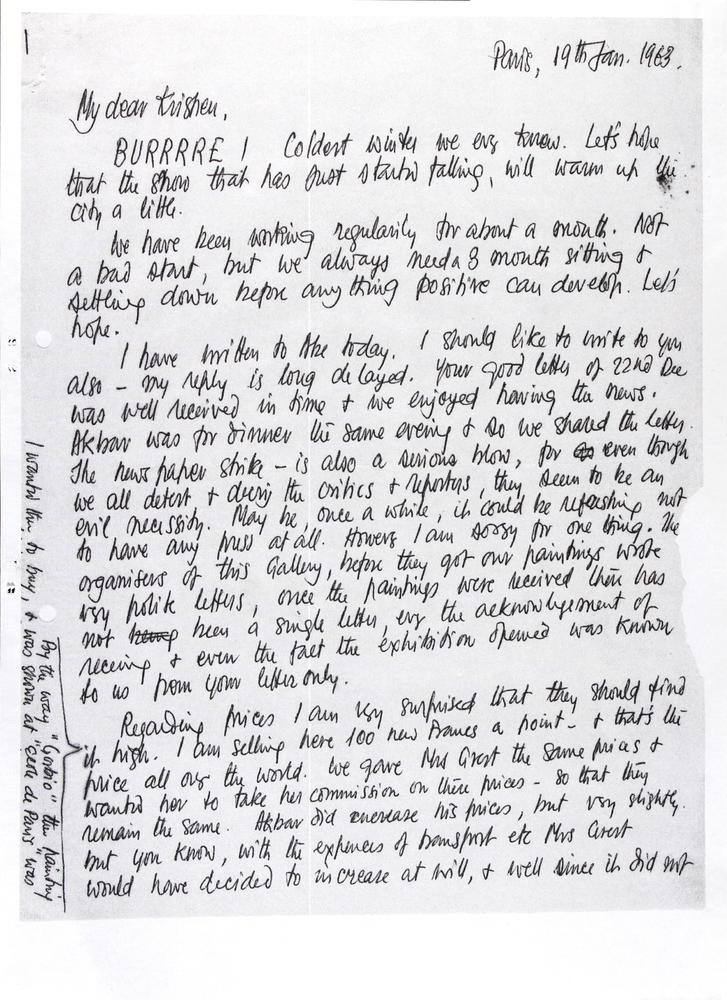 Paris, 19th Jan. 1963.
My dear Krishen,
BURRRRE ! Coldest winter we ever knew. Let's hope
that the show that has just started falling, will warm up the
city a little.
We have been working regularily for about a month. Not
a bad start, but we always need a 3 month sitting &
settling down before any thing positive can develop. Let's
hope.
I have written to Abe today. I should like to write to you
also - my reply is long delayed. Your good letter of 22nd Dec
was well received in time & we enjoyed having the news.
Akbar was for dinner the same evening & so we shared the letter.
The news paper strike - is also a serious blow, for even though
we all detest & decry the critics & reporters, they seem to be an
evil necessity. May be, once a while, it could be refreshing not
to have any press at all. However I am sorry for one thing. The
organisers of this Gallery, before they got our paintings wrote
very polite letters, once the paintings were received there has
not being been a single letter, even the acknowlegement of
receiving & even the fact the exhibition opened was known
to us from your letter only.
Regarding prices I am very surprised that they should find
it high. I am selling here 100 new Francs a point - & that's the
price all over the world. We gave Mrs Grest the same prices &
wanted her to take her commission on these prices - so that they
remain the same. Akbar did encrease his prices, but very slightly.
but you know, with the expences of transport etc Mrs Grest
would have decided to increase at will, & well since it did not
By the way "Gorbio" the painting
I wanted them to buy, & was shown at "Ecole de Paris" was